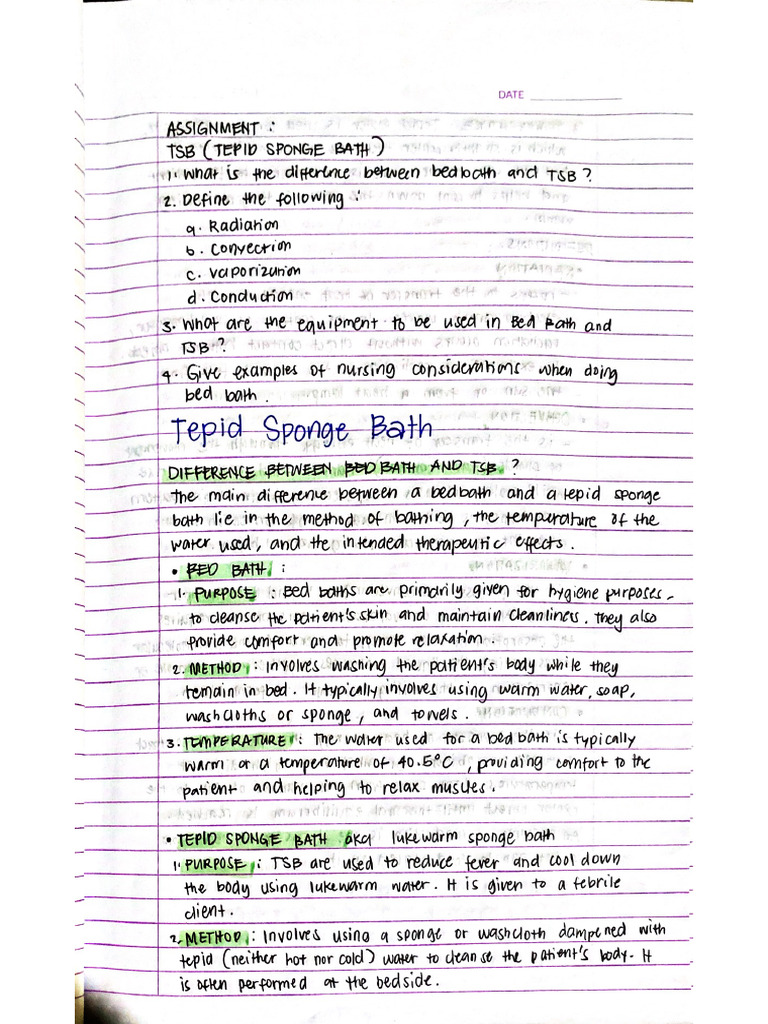 DATE
ASSIGNMENT :
TSB (TEPID SPONGE BATH)
1. What is the difference between bedbath and TSB?
2. Define the following :
a. Radiation
b. Convection
c. Vaporization
d. Conduction
3. What are the equipment to be used in Bed Bath and
TSB?
4. Give examples of nursing considerations when doing
bed bath.
Tepid Sponge Bath
DIFFERENCE BETWEEN BED BATH AND TSB ?
The main difference between a bedbath and a tepid sponge
bath lie in the method of bathing, the temperature of the
water used, and the intended therapeutic effects.
• BED BATH :
1. PURPOSE : Bed baths are primarily given for hygiene purposes-
to cleanse the patient's skin and maintain cleanliness. they also
provide comfort and promote relaxation.
2. METHOD : Involves washing the patient's body while they
remain in bed. It typically involves using warm water, soap,
washcloths or sponge, and towels.
3. TEMPERATURE : The water used for a bedbath is typically
warm at a temperature of 40.5°C, providing comfort to the
patient and helping to relax muscles.
• TEPID SPONGE BATH aka lukewarm sponge bath
1. PURPOSE : TSB are used to reduce fever and cool down
the body using lukewarm water. It is given to a febrile
client.
2. METHOD : Involves using a sponge or washcloth dampened with
tepid (neither hot nor cold) water to cleanse the patient's body. It
is often performed at the bedside.